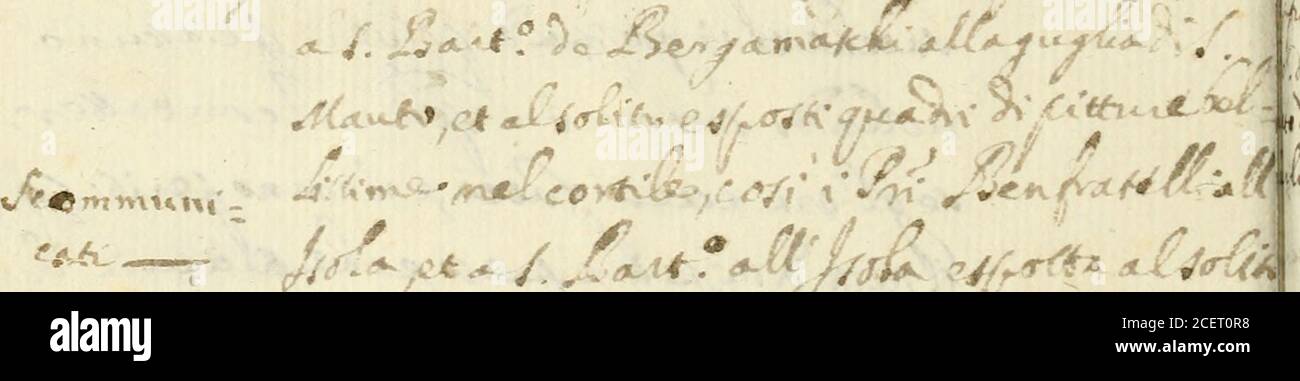 a S. Bart.º de Bergamaschi alla guglia di S.
Mauto, et al solito esposti quadri di pitture bel=
lissime nel cortile, così i Pri Benfratelli all
Scommuni=
cati —
Isola, et a S. Bart.º all' Isola esposte al solito
alamy
Image ID: 2CET0R8
www.alamy.com